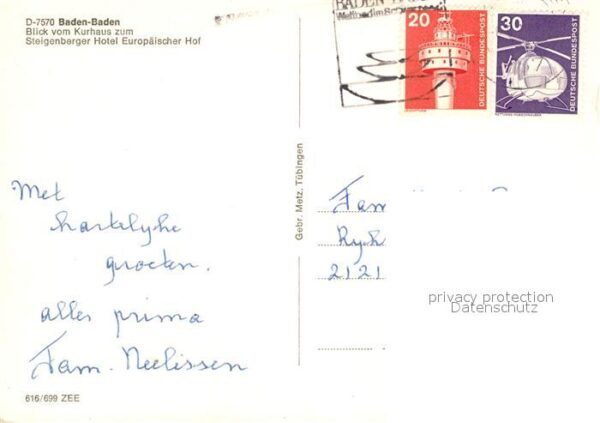 D-7570 Baden-Baden
Blick vom Kurhaus zum
Steigenberger Hotel Europäischer Hof
BADEN-
20
DEUTSCHE BUNDESPOST
30
DEUTSCHE BUNDESPOST
Gebr. Metz, Tübingen
Met
hartelyke
groeten.
alles prima
Fam. Neelissen
Fam
Ryk
2121
privacy protection
Datenschutz
616/699 ZEE